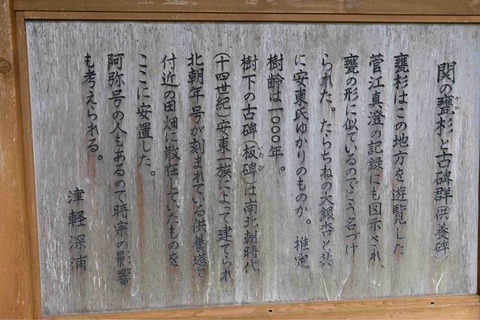 関の甕杉と古碑群(供養碑)
かめ
甕杉はこの地方を遊覧した
菅江真澄の記録にも図示され、
甕の形に似ているのでこう名づけ
られた。たらちねの大銀杏と共
に安東氏ゆかりのものか。推定
樹齢は一〇〇〇年。
樹下の古碑(板碑)は南北朝時代
いたび
(十四世紀)安東一族によって建てられ
北朝年号が刻まれている供養塔で
付近の田畑に散在していたものを
ここに安置した。
阿弥号の人もあるので時宗の影響
も考えられる。
津軽深浦